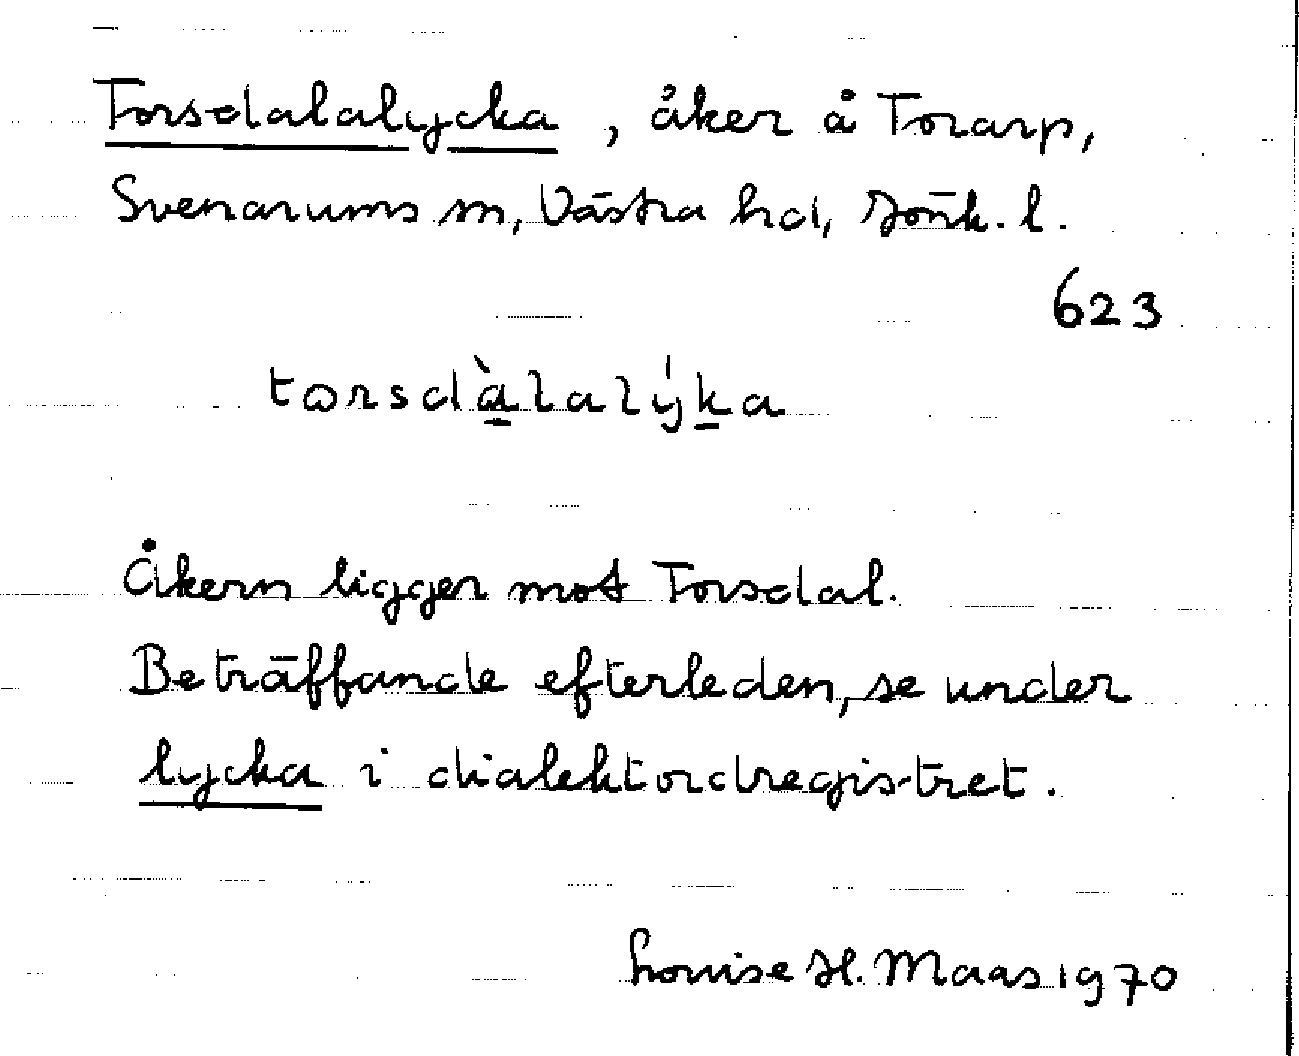 Torsdalalycka, åker å Torarp,
Svenarums sn, Västra hd, Jönk. l.
623
torsdàlalýka
Åkern ligger mot Torsdal.
Beträffande efterleden, se under
lycka i dialektordregistret.
Louise H. Maas 1970